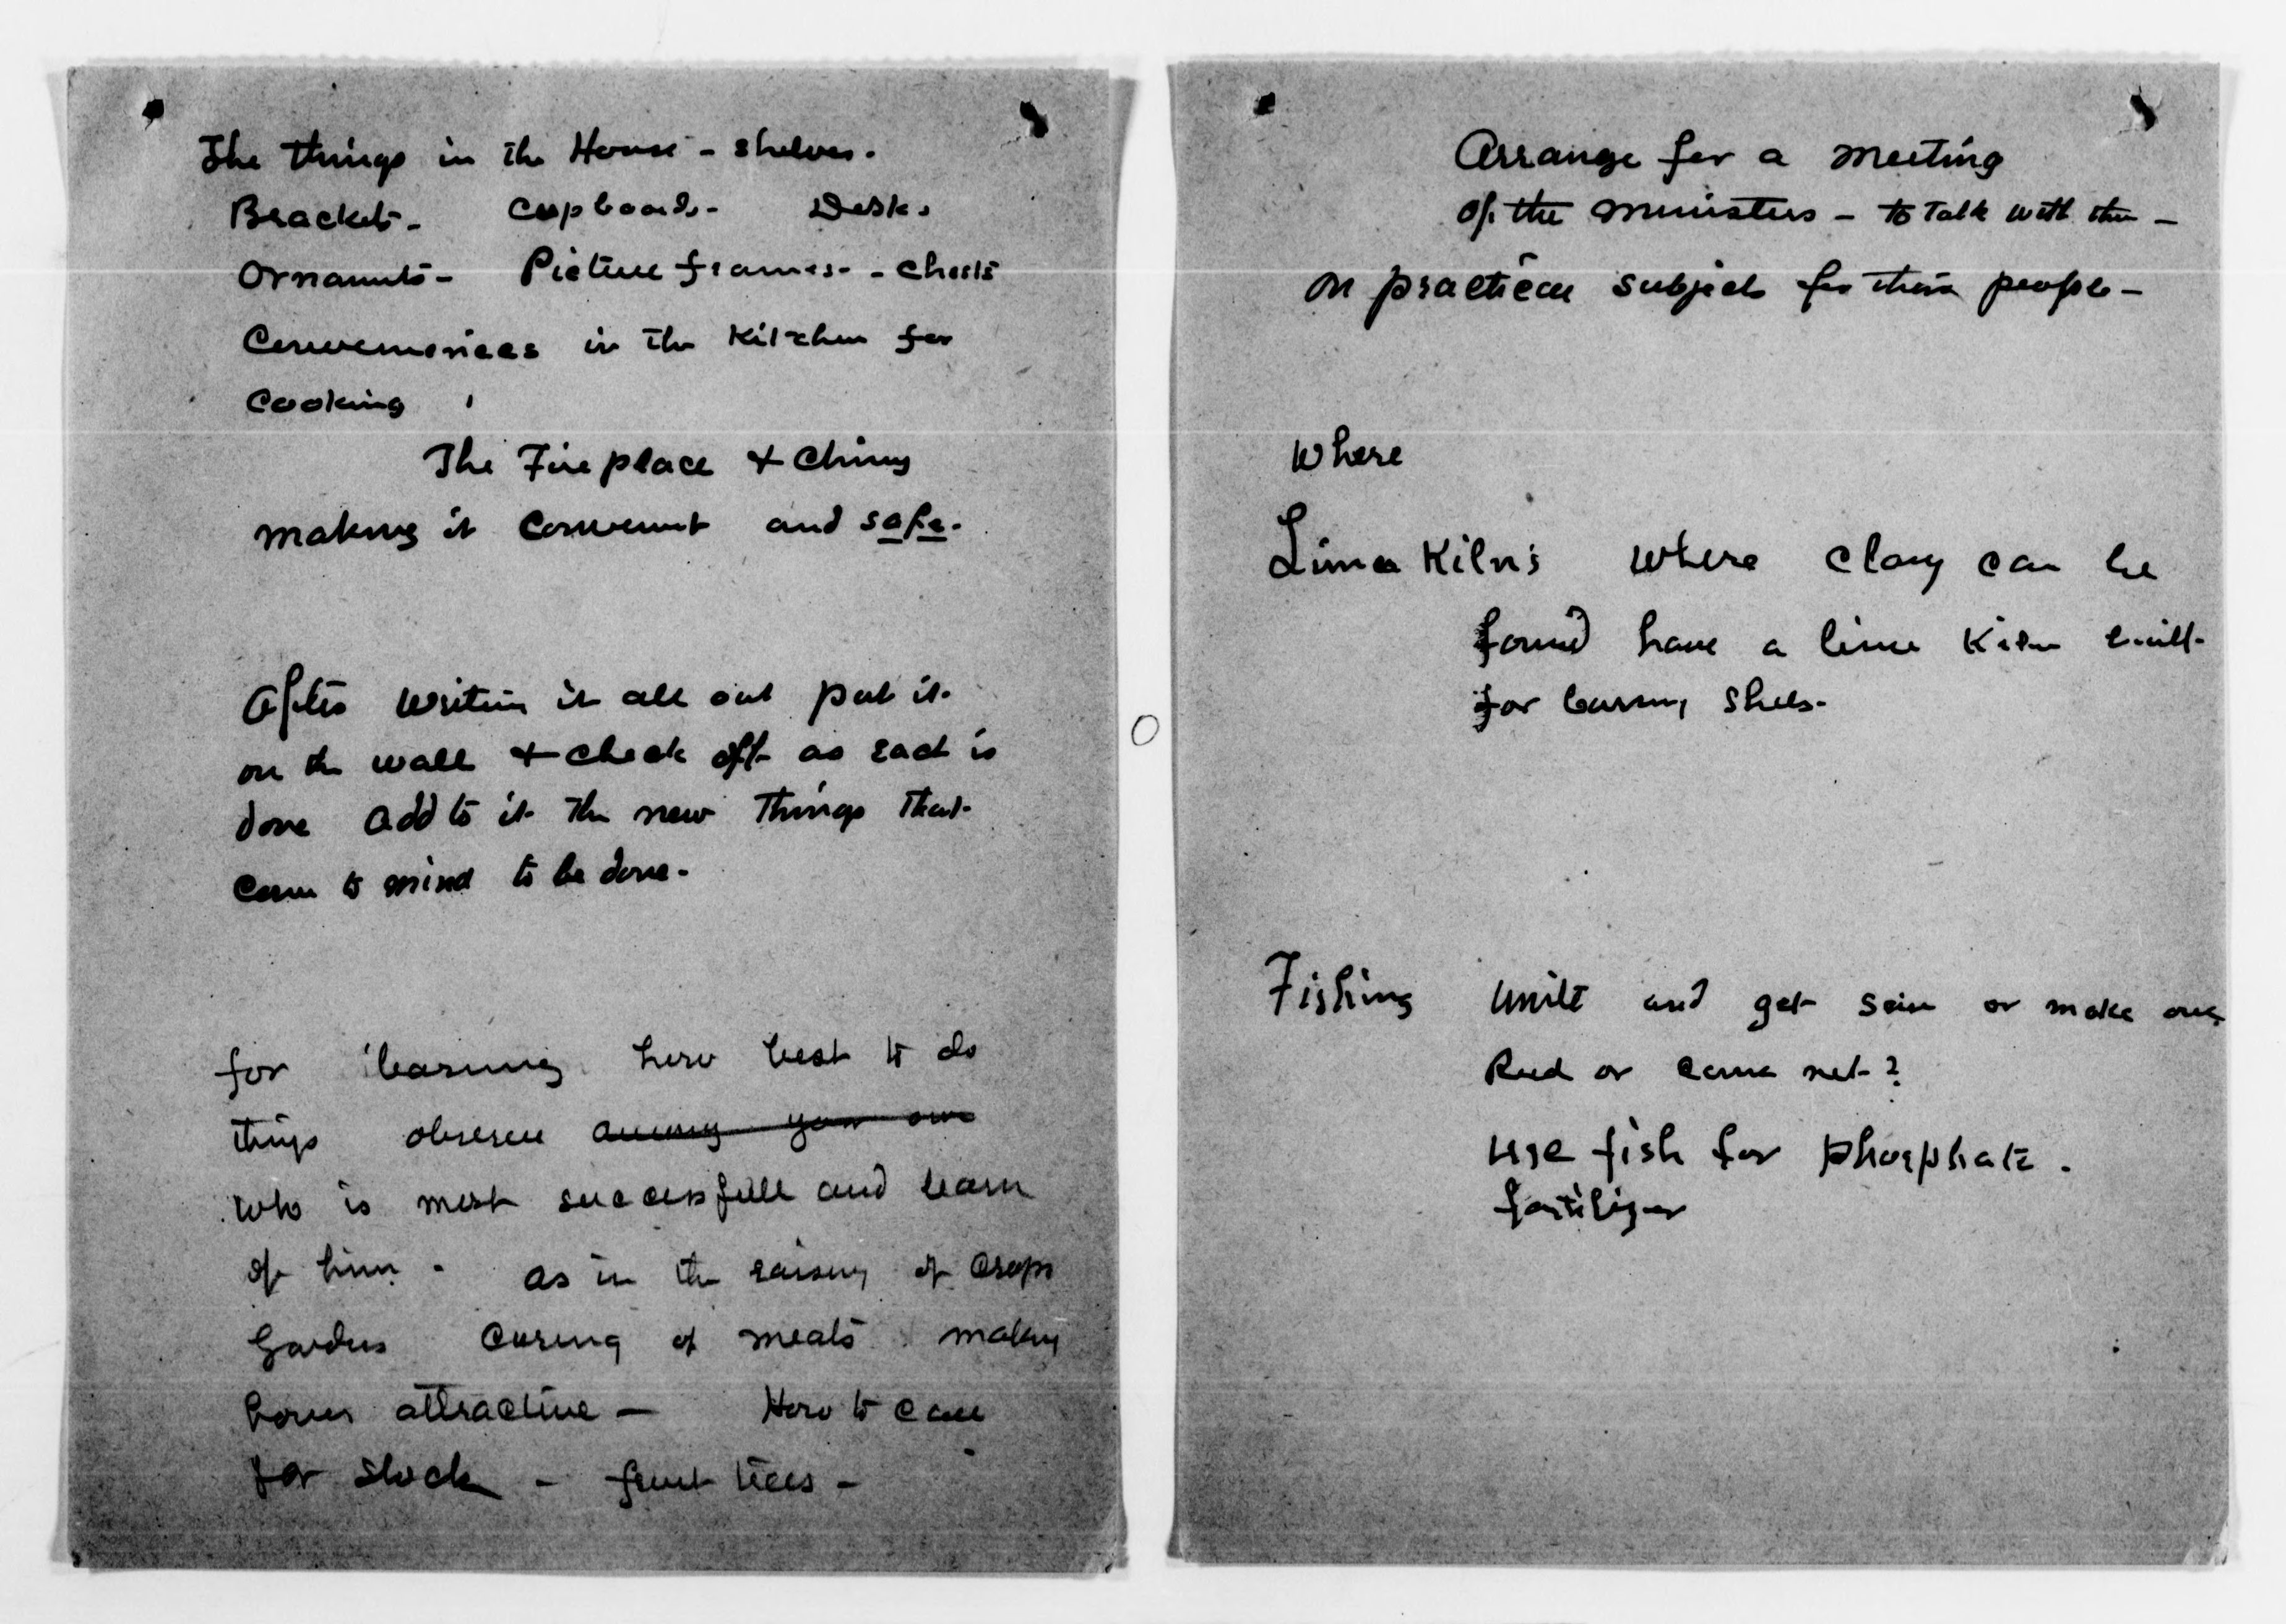 The things in the House - shelves.
Brackets - Cupboards - Desks
Ornamnts - Picture frames - - Chests
Conveniences in the Kitchen for
Cooking
The Fireplace + Chimy
making it Convenint and safe.
After writing it all out put it
on the wall + check off as each is
done add to it the new things that
come to mind to be done -
for learning how best to do
things observe among your own
who is most successfull and learn
of him - as in the raising of crops
Gardens Curing of meats making
homes attractive - How to care
for stock - fruit trees -
Arrange for a meeting
of the ministers - to talk with them -
on practical subjects for their people -
Where
Lime Kilns where clay can be
found have a lime Kiln built
for burning shells -
Fishing Unite and get sein or make one
Reed or cane net?
use fish for phosphate.
fertilizer